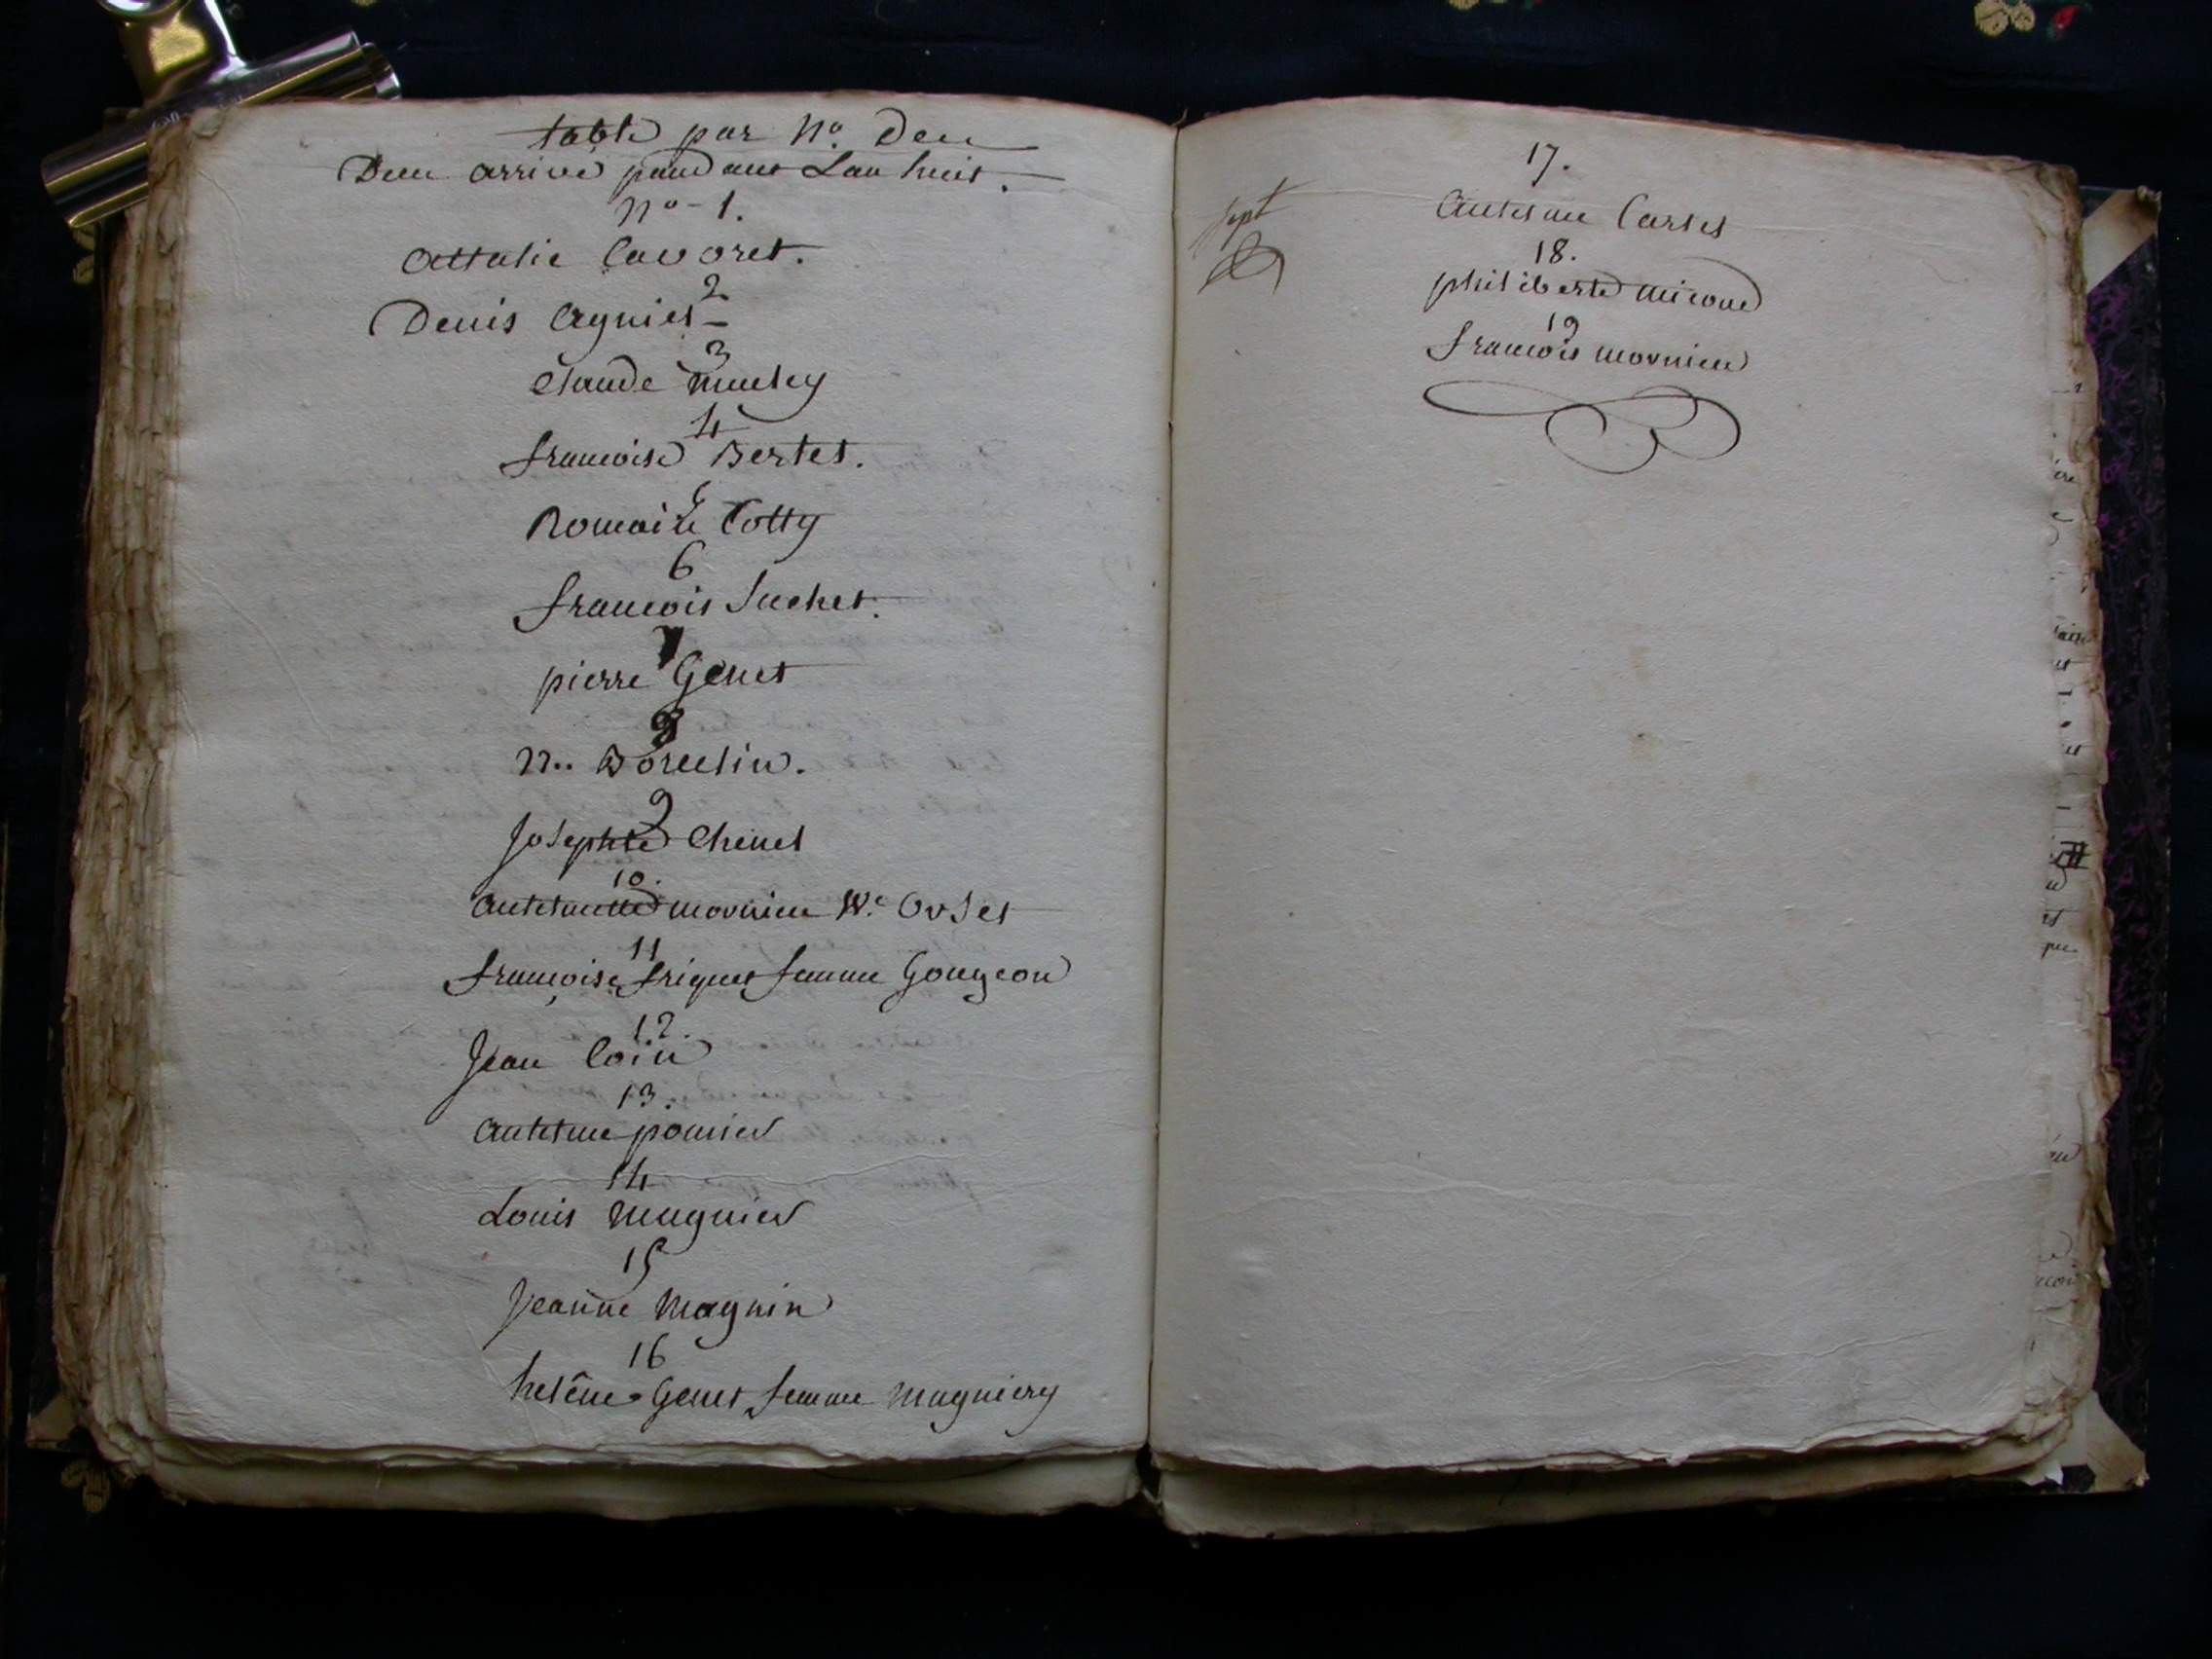 table par N.o Deu
Deu arrivé pandant Lan huit.
No - 1.
Attalie Cavoret.
2
Denis Agniet
3
Claude
4
francoise Bertet.
5
Romain Cotty
6
francois Suchet.
7
pierre Genet
8
N.. Borcelin.
9
Josephte Chenet
10.
Antelmette mornieu Ve. Orset
11
françoise friquet femme Gougeon
12.
Jean Coin
13.
Antelme pomier
14
Louis Magnier
15
Jeanne Magnin
16
helêne Genet femme Magniery
17.
sept
Antelme Carret
18.
philiberte micone
19
francois mornieu